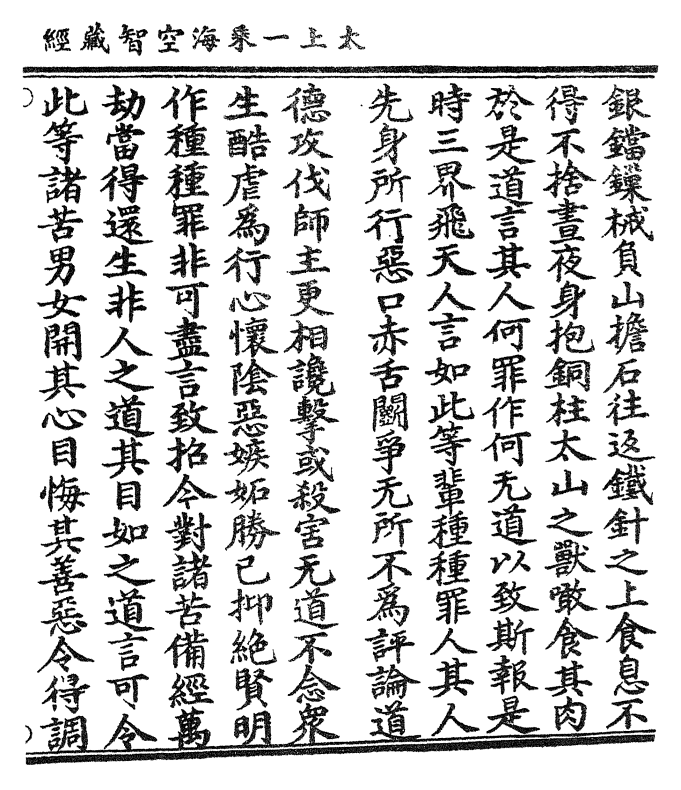 太上一乘海空智藏經
銀鐺鏁械負山擔石往返鐵針之上食息不
得不捨晝夜身抱銅柱太山之獸噉食其肉
於是道言其人何罪作何无道以致斯報是
時三界飛天人言如此等輩種種罪人其人
先身所行惡口赤舌鬭爭无所不為評論道
德攻伐師主更相讒擊或殺害无道不念衆
生酷虐為行心懷陰惡嫉妬勝己抑絶賢明
作種種罪非可盡言致招今對諸苦備經萬
劫當得還生非人之道其目如之道言可令
此等諸苦男女開其心目悔其善惡令得調